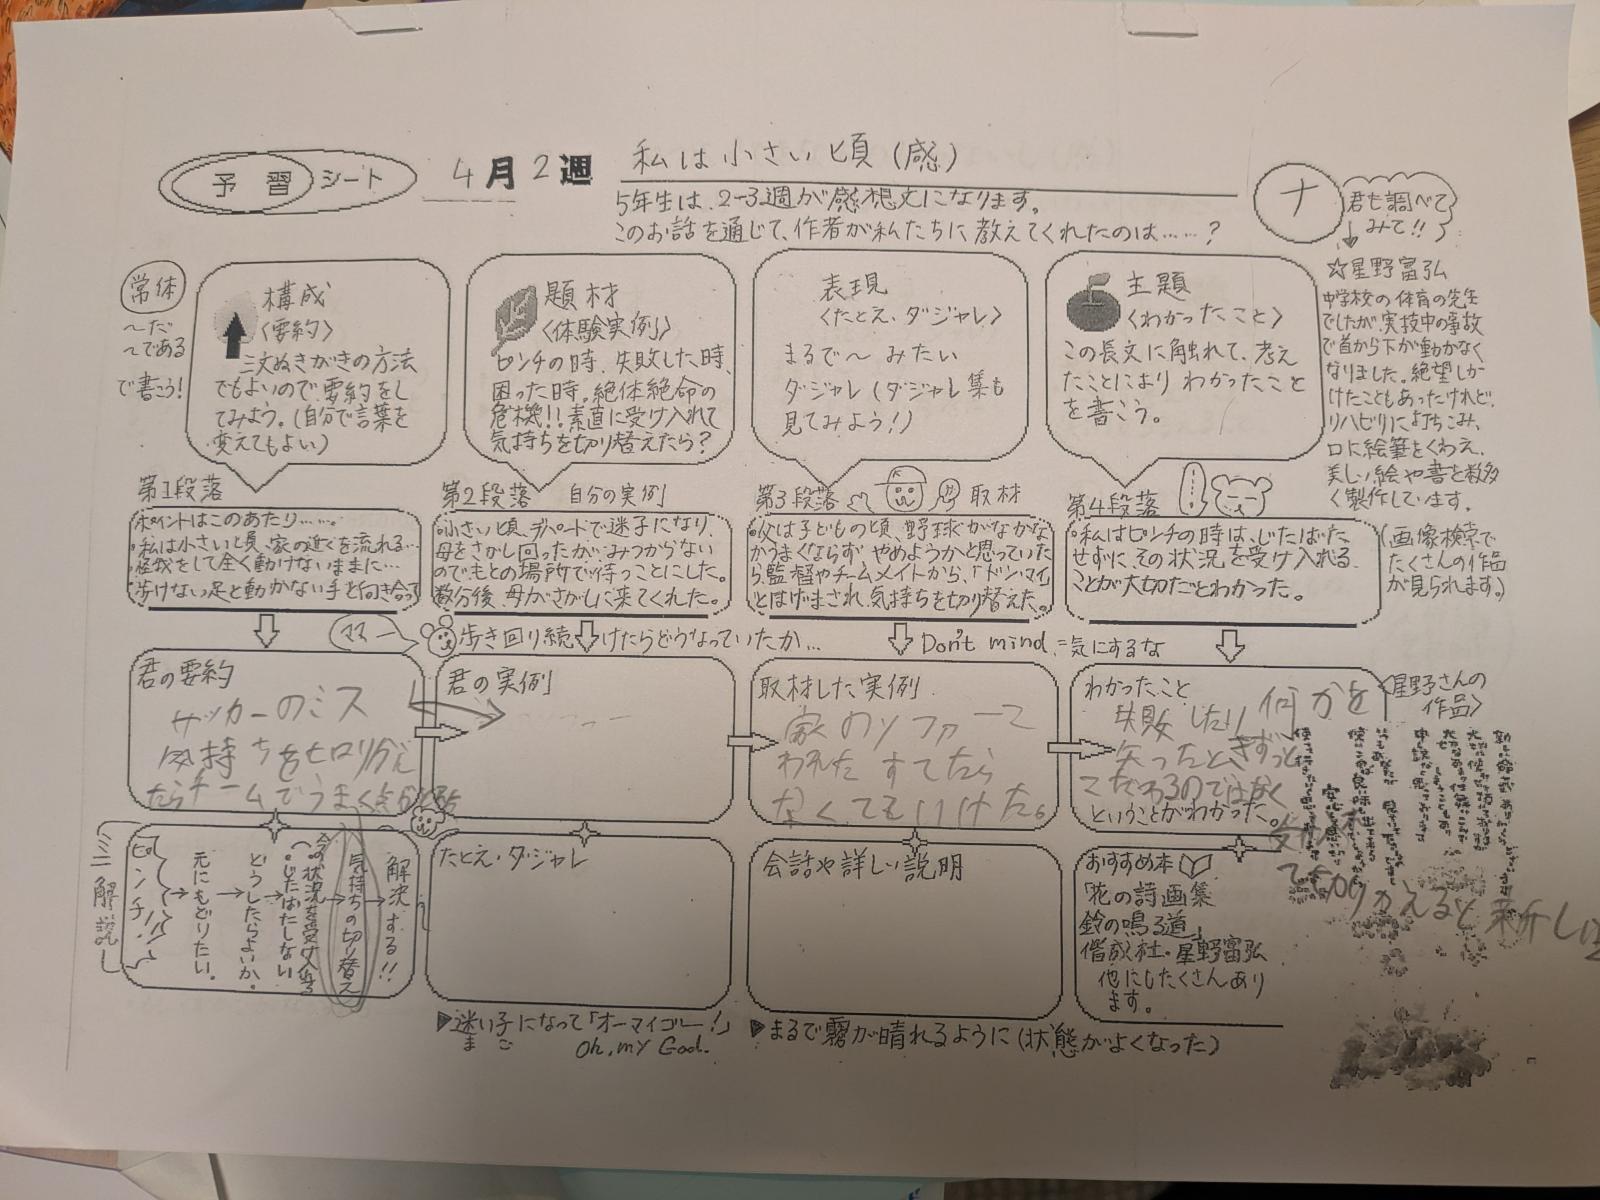 予習シート
4月2週
私は小さい頃(感)
5年生は、2-3週が感想文になります。
このお話を通じて、作者が私たちに教えてくれたのは……?
ナ
君も調べて
みて!!
常体
〜だ
〜である
で書こう!
構成
〈要約〉
三文ぬきがきの方法
でもよいので要約をし
てみよう。(自分で言葉を
変えてもよい)
題材
〈体験実例〉
ピンチの時、失敗した時、
困った時。絶体絶命の
危機!!素直に受け入れて
気持ちを切り替えたら?
表現
〈たとえ・ダジャレ〉
まるで〜みたい
ダジャレ(ダジャレ集も
見てみよう!)
主題
〈わかったこと〉
この長文に触れて、考え
たことによりわかったこと
を書こう。
☆星野富弘
中学校の体育の先生
でしたが、実技中の事故
で首から下が動かなく
なりました。絶望しか
けたこともあったけれど、
リハビリに打ちこみ、
口に絵筆をくわえ、
美しい絵や書を数多
く製作しています。
(画像検索で
たくさんの作品
が見られます。)
第1段落
ポイントはこのあたり……。
・私は小さい頃、家の近くを流れる…
・怪我をして全く動けないままに…
・歩けない足と動かない手と向き合って
第2段落 自分の実例
・小さい頃、デパートで迷子になり、
母をさがし回ったが、みつからない
のでもとの場所で待つことにした。
数分後、母がさがしに来てくれた。
第3段落 取材
・父は子どもの頃、野球がなかな
かうまくならず、やめようかと思っていた
ら、監督やチームメイトから、「ドンマイ」
とはげまされ、気持ちを切り替えた。
第4段落
・私はピンチの時は、じたばた
せずに、その状況を受け入れる
ことが大切だとわかった。
ママー
歩き回り続けたらどうなっていたか…
Don't mind.=気にするな
君の要約
サッカーのミス
気持ちを切り替え
たらチームでうまく
君の実例
取材した実例
家のソファーで
われた すてたら
なくてもいけた。
わかったこと
失敗したり何かを
失ったときずっと
こだわるのではなく
ということがわかった。
て切りかえると新しい
〈星野さんの
作品〉
ミニ解説
ピンチ!!
→元にもどりたい。
→どうしたらよいか。
→今の状況を受け入れる
(。じたばたしない
→気持ちの切り替え
→解決する!!
たとえ・ダジャレ
会話や詳しい説明
おすすめ本
「花の詩画集
鈴の鳴る道」
偕成社・星野富弘
他にもたくさんあり
ます。
▶迷い子になって「オーマイゴー!」
ま ご
Oh, my God.
▶まるで霧が晴れるように(状態がよくなった)